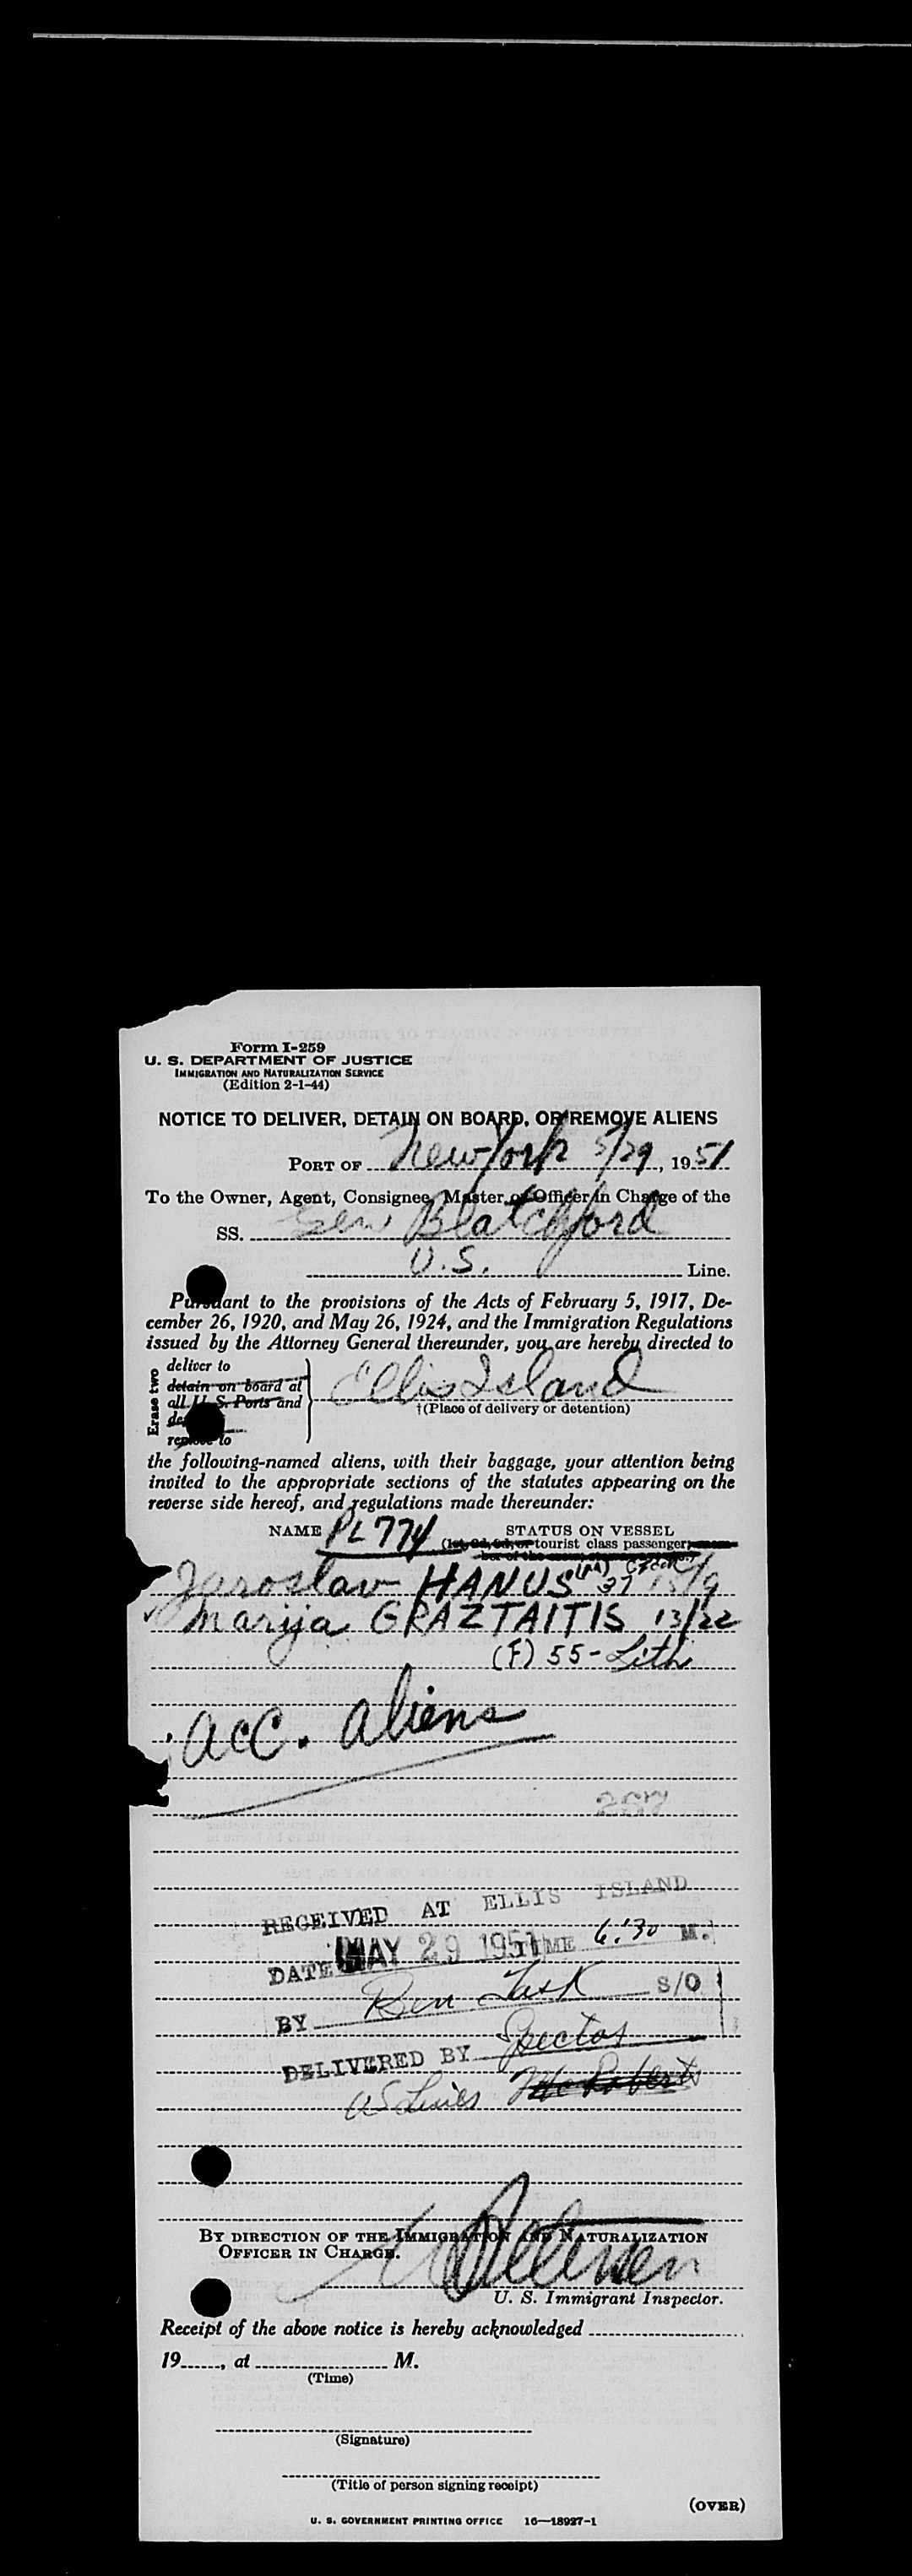 Form I-259
U. S. DEPARTMENT OF JUSTICE
IMMIGRATION AND NATURALIZATION SERVICE
(Edition 2-1-44)
NOTICE TO DELIVER, DETAIN ON BOARD, OR REMOVE ALIENS
PORT OF New York 5/29, 1951
To the Owner, Agent, Consignee, Master or Officer in Charge of the
SS. Gen Blatchford
U.S. Line.
Pursuant to the provisions of the Acts of February 5, 1917, De-
cember 26, 1920, and May 26, 1924, and the Immigration Regulations
issued by the Attorney General thereunder, you are hereby directed to
Erase two
deliver to
detain on board at
all U. S. Ports and
remove to
Ellis Island
†(Place of delivery or detention)
the following-named aliens, with their baggage, your attention being
invited to the appropriate sections of the statutes appearing on the
reverse side hereof, and regulations made thereunder:
NAME PL 774 STATUS ON VESSEL
(1st, 2d, 3d, or tourist class passenger,
Jaroslav HANUS (M) 37 Czech 15/9
Marija GRAZTAITIS 13/22
(F) 55 - Lith
acc. aliens
RECEIVED AT ELLIS ISLAND
DATE MAY 29 1951 TIME 6:30 M.
BY Ben Task S/O
DELIVERED BY Spectas
US Lines McRoberts
BY DIRECTION OF THE IMMIGRATION AND NATURALIZATION
OFFICER IN CHARGE.
U. S. Immigrant Inspector.
Receipt of the above notice is hereby acknowledged
19, at M.
(Time)
(Signature)
(Title of person signing receipt)
(OVER)
U. S. GOVERNMENT PRINTING OFFICE 16—18927-1